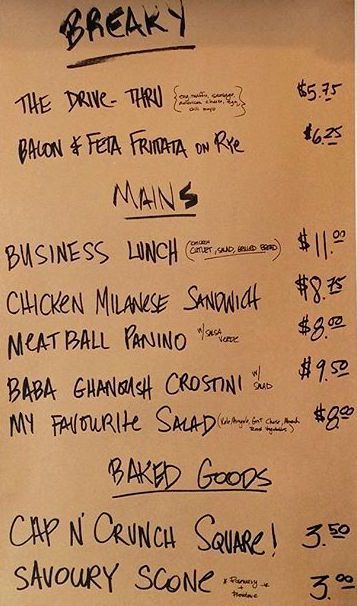 BREAKY
THE DRIVE-THRU (egg muffin, sausage, american cheese, egg, $5.75
BACON & FETA FRITTATA ON RYE $6.25
MAINS
BUSINESS LUNCH (CHICKEN CUTLET, SALAD, GRILLED BREAD) $11.00
CHICKEN MILANESE SANDWICH $8.75
MEATBALL PANINO w/ SALSA VERDE $8.00
BABA GHANOUSH CROSTINI w/ SALAD $9.50
MY FAVOURITE SALAD (Kale/Arugula, Goat Cheese, Roast Vegetables) $8.00
BAKED GOODS
CAP N' CRUNCH SQUARE! 3.50
SAVOURY SCONE * Rosemary + Provolone * 3.00